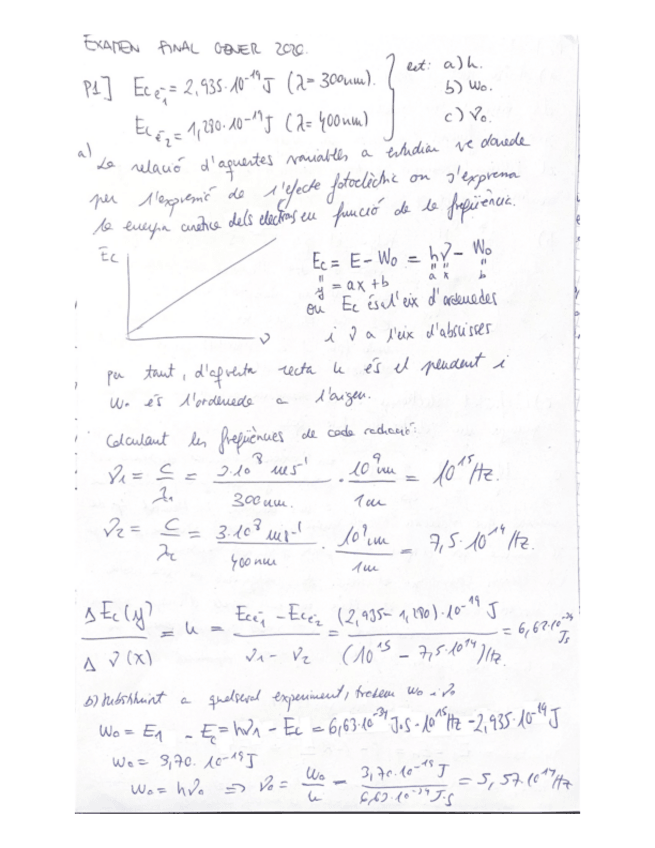 EXAMEN FINAL GENER 2020.
P1] Ec e⁻₁ = 2,935·10⁻¹⁹ J (λ = 300 nm).
Ec e⁻₂ = 1,280·10⁻¹⁹ J (λ = 400 nm)
a) h.
b) W₀.
c) ν₀.
a) La relació d'aquestes variables a estudiar ve donada
per l'expressió de l'efecte fotoelèctric on s'expressa
la energia cinètica dels electrons en funció de la freqüència.
Ec
ν
Ec = E - W₀ = hν - W₀
" " " "
y = ax + b a x b
on Ec és l'eix d'ordenades
i ν a l'eix d'abscisses
per tant, d'aquesta recta h és el pendent i
W₀ és l'ordenada a l'origen.
Calculant les freqüències de cada radiació:
ν₁ = c/λ₁ = 3·10⁸ ms⁻¹/300 nm. · 10⁹ nm/1m = 10¹⁵ Hz.
ν₂ = c/λ₂ = 3·10⁸ ms⁻¹/400 nm · 10⁹ nm/1m = 7,5·10¹⁴ Hz.
Δ Ec (y)/Δ ν (x) = h = Ec e⁻₁ - Ec e⁻₂/ν₁ - ν₂ = (2,935 - 1,280)·10⁻¹⁹ J/(10¹⁵ - 7,5·10¹⁴) Hz. = 6,62·10⁻³⁴ Js
b) Substituint a qualsevol experiment, trobem W₀ i ν₀
W₀ = E₁ - Ec = hν₁ - Ec = 6,63·10⁻³⁴ J·s·10¹⁵ Hz - 2,935·10⁻¹⁹ J
W₀ = 3,70·10⁻¹⁹ J
W₀ = hν₀ ⇒ ν₀ = W₀/h = 3,70·10⁻¹⁹ J/6,63·10⁻³⁴ J·s = 5,57·10¹⁴ Hz